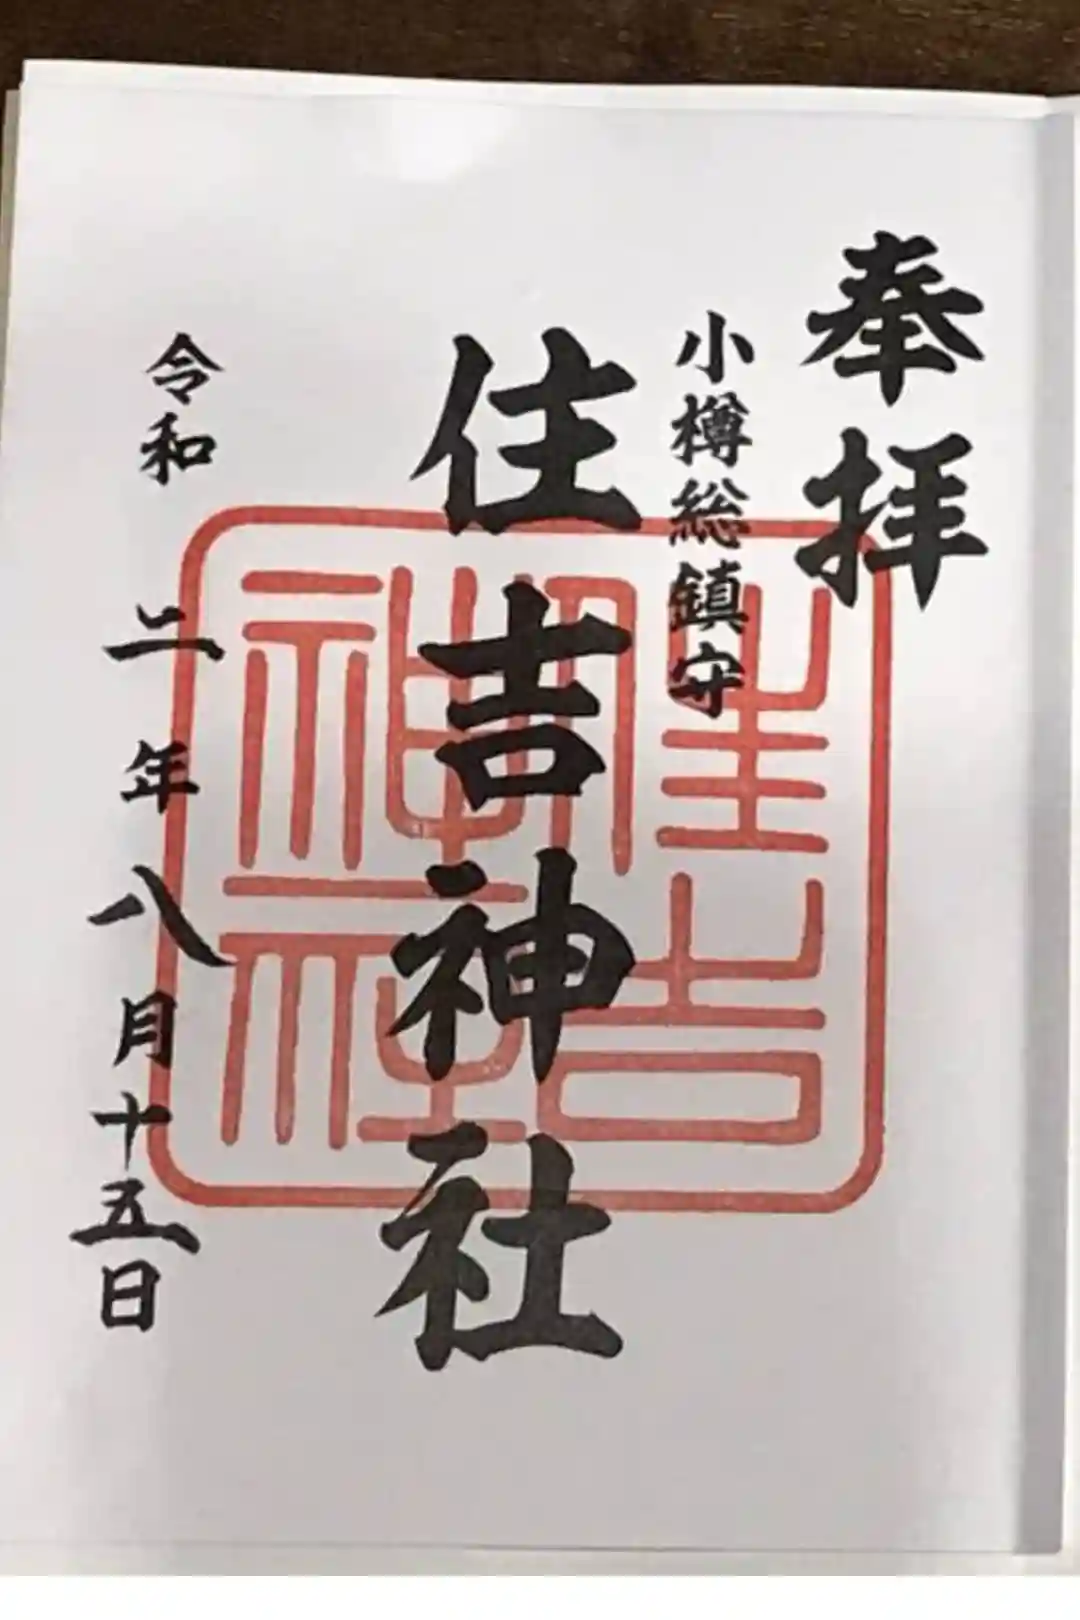 奉拝
小樽総鎮守
住吉神社
住吉
神社
令和二年八月十五日